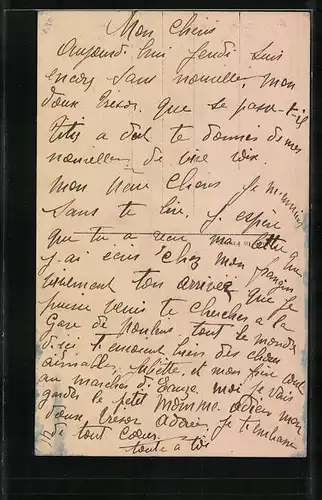 Mon Cheris
Aujourd hui Jeudi suis
encore sans nouvelle, mon
doux Trésor. que se passe-t-il
Titis a doit te donner de mes
nouvelles de vive voix.
Mon Cheris Je m'ennuie
sans te lire. J. espère
que tu a reçu ma lettre que
j. ai écris chez mon
ton arrivée que je
puisse venir te chercher a la
Gare de tout le monde
d'ici t envoient biens des choses
aimables. et mon frère vont
au marches moi je vais
garder le petit momme. adieu mon
doux Trésor Adorée, Je t'embrasse
de tout Coeur.
toute a toi